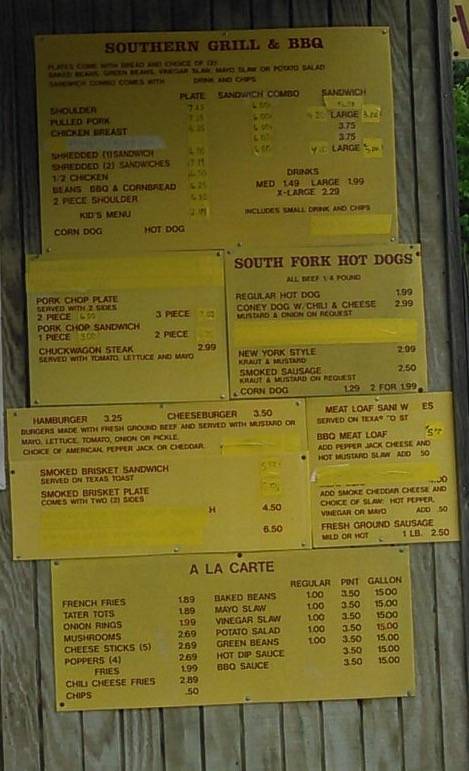 SOUTHERN GRILL & BBQ
PLATES COME WITH BREAD AND CHOICE OF (2):
BAKED BEANS, GREEN BEANS, VINEGAR SLAW, MAYO SLAW OR POTATO SALAD
SANDWICH COMBO COMES WITH DRINK AND CHIPS
PLATE SANDWICH COMBO SANDWICH
SHOULDER
PULLED PORK LARGE
CHICKEN BREAST 3.75
3.75
SHREDDED (1) SANDWICH LARGE
SHREDDED (2) SANDWICHES
1/2 CHICKEN DRINKS
BEANS BBQ & CORNBREAD MED 1.49 LARGE 1.99
2 PIECE SHOULDER X-LARGE 2.29
KID'S MENU INCLUDES SMALL DRINK AND CHIPS
CORN DOG HOT DOG
PORK CHOP PLATE
SERVED WITH 2 SIDES
2 PIECE 3 PIECE
PORK CHOP SANDWICH
1 PIECE 2 PIECE
CHUCKWAGON STEAK 2.99
SERVED WITH TOMATO, LETTUCE AND MAYO
SOUTH FORK HOT DOGS
ALL BEEF 1/4 POUND
REGULAR HOT DOG 1.99
CONEY DOG W/CHILI & CHEESE 2.99
MUSTARD & ONION ON REQUEST
NEW YORK STYLE 2.99
KRAUT & MUSTARD
SMOKED SAUSAGE 2.50
KRAUT & MUSTARD ON REQUEST
CORN DOG 1.29 2 FOR 1.99
HAMBURGER 3.25 CHEESEBURGER 3.50
BURGERS MADE WITH FRESH GROUND BEEF AND SERVED WITH MUSTARD OR
MAYO, LETTUCE, TOMATO, ONION OR PICKLE.
CHOICE OF AMERICAN, PEPPER JACK OR CHEDDAR.
SMOKED BRISKET SANDWICH
SERVED ON TEXAS TOAST
SMOKED BRISKET PLATE
COMES WITH TWO (2) SIDES
H 4.50
6.50
MEAT LOAF SANI W ES
SERVED ON TEXA TO ST
BBQ MEAT LOAF
ADD PEPPER JACK CHEESE AND
HOT MUSTARD SLAW ADD .50
ADD SMOKE CHEDDAR CHEESE AND
CHOICE OF SLAW: HOT PEPPER,
VINEGAR OR MAYO ADD .50
FRESH GROUND SAUSAGE
MILD OR HOT 1 LB. 2.50
A LA CARTE
FRENCH FRIES 1.89
TATER TOTS 1.89
ONION RINGS 1.99
MUSHROOMS 2.69
CHEESE STICKS (5) 2.69
POPPERS (4) 2.69
FRIES 1.99
CHILI CHEESE FRIES 2.89
CHIPS .50
REGULAR PINT GALLON
BAKED BEANS 1.00 3.50 15.00
MAYO SLAW 1.00 3.50 15.00
VINEGAR SLAW 1.00 3.50 15.00
POTATO SALAD 1.00 3.50 15.00
GREEN BEANS 1.00 3.50 15.00
HOT DIP SAUCE 3.50 15.00
BBQ SAUCE 3.50 15.00